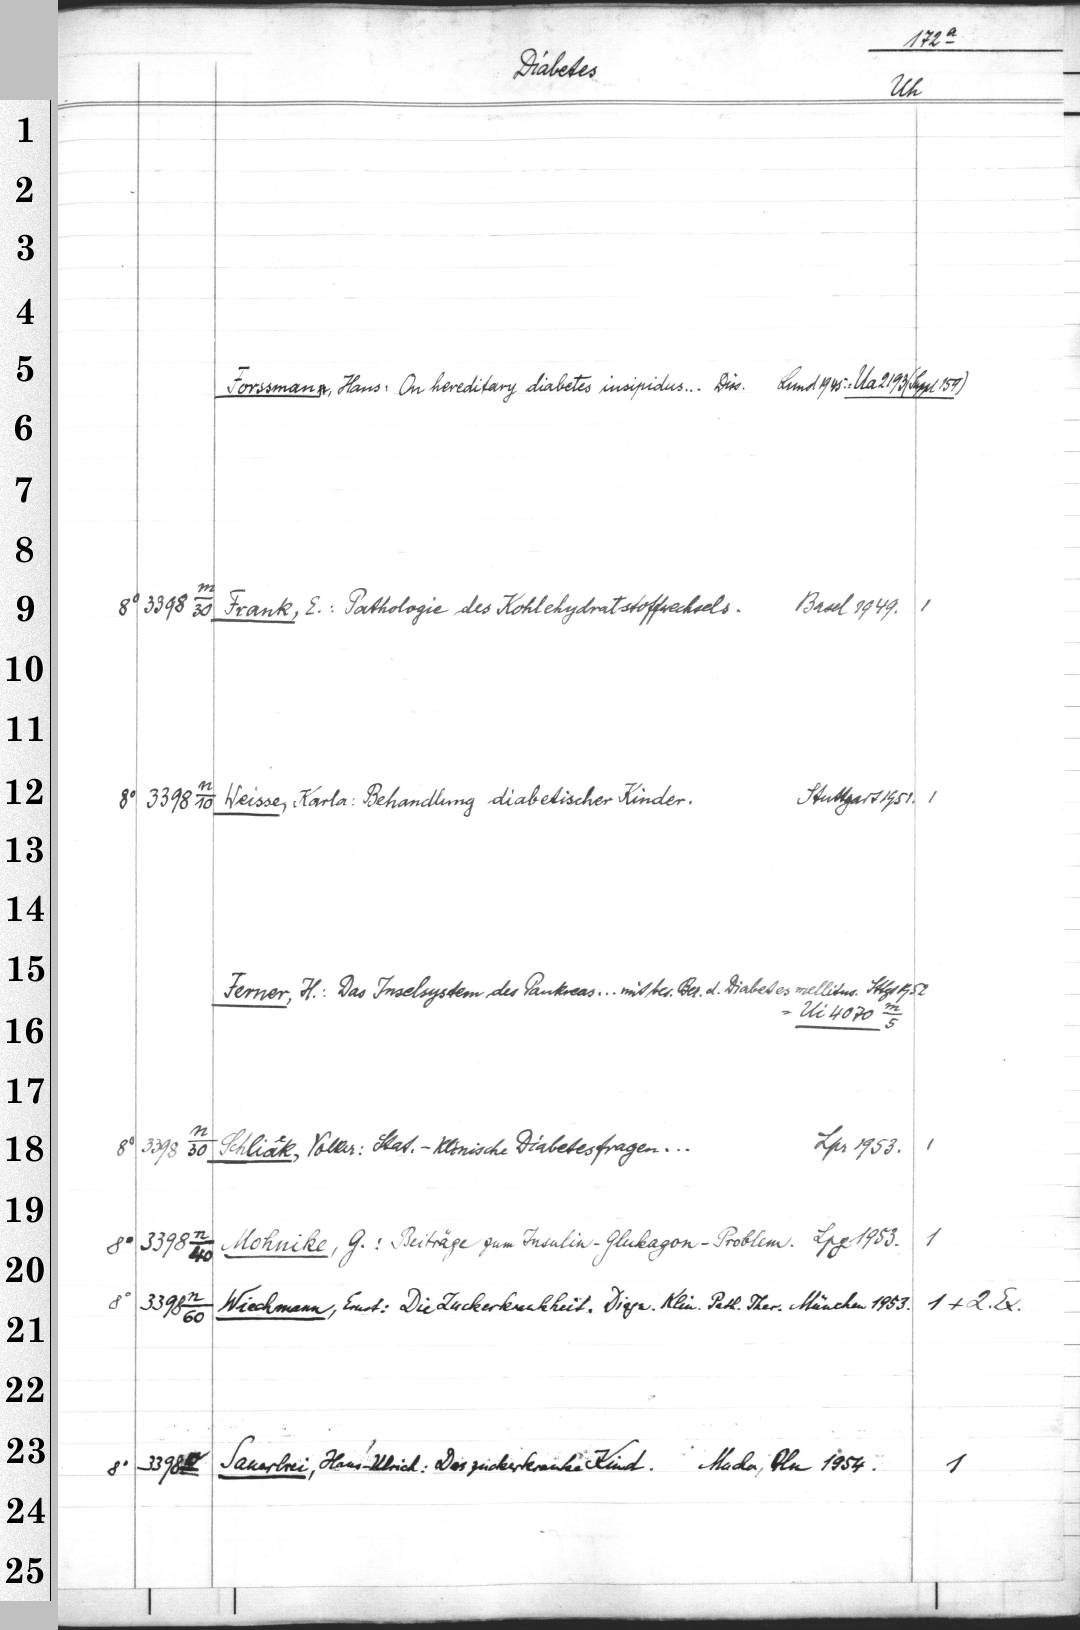 172a
Diabetes
Uh
1
2
3
4
5
Forssmann, Hans: On hereditary diabetes insipidus... Diss. Lund 1945 = Ua 2193 (Suppl 159)
6
7
8
9
8° 3398 m/30 Frank, E.: Pathologie des Kohlehydratstoffwechsels. Basel 1949. 1
10
11
12
8° 3398 n/10 Weisse, Karla: Behandlung diabetischer Kinder. Stuttgart 1951. 1
13
14
15
Ferner, H.: Das Inselsystem des Pankreas... mit bes. Ber. d. Diabetes mellitus. Sttgt 1952
= Ui 4070 m/5
16
17
18
8° 3398 n/30 Schliack, Volker: Stat.-klinische Diabetesfragen... Lpz 1953. 1
19
8° 3398 n/40 Mohnike, G.: Beiträge zum Insulin-Glukagon-Problem. Lpzg 1953. 1
20
8° 3398 n/60 Wiechmann, Ernst: Die Zuckerkrankheit. Diagn. Klin. Path. Ther. München 1953. 1 + 2. Ex.
21
22
23
8° 3398 Sauerbrei, Hans-Ulrich: Das zuckerkranke Kind. Bln 1954. 1
24
25